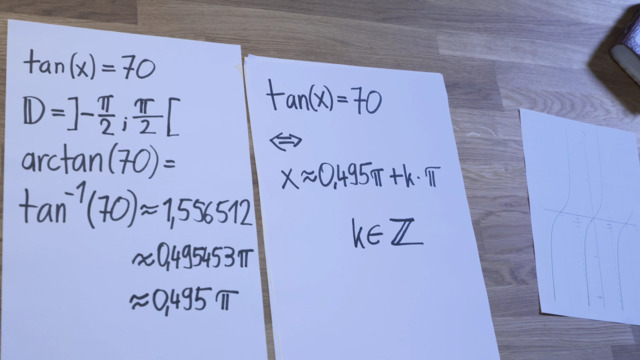 tan(x) = 70
𝔻 = ]-π/2 ; π/2[
arctan(70) =
tan⁻¹(70) ≈ 1,556512
≈ 0,495453π
≈ 0,495 π
tan(x) = 70
⇔
x ≈ 0,495π + k · π
k ∈ ℤ